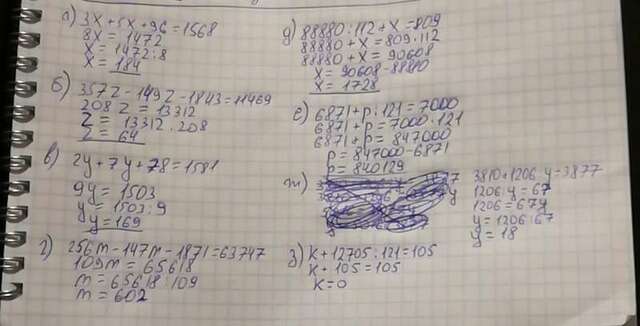 а) 3x + 5x + 96 = 1568
8x = 1472
x = 1472 : 8
x = 184
б) 357z - 149z - 1843 = 11469
208 z = 13312
z = 13312 : 208
z = 64
в) 2y + 7y + 78 = 1581
9y = 1503
y = 1503 : 9
y = 169
г) 256m - 147m - 1871 = 63747
109m = 65618
m = 65618 : 109
m = 602
д) 88880 : 112 + x = 809
88880 + x = 809 · 112
88880 + x = 90608
x = 90608 - 88880
x = 1728
е) 6871 + p : 121 = 7000
6871 + p = 7000 · 121
6871 + p = 847000
p = 847000 - 6871
p = 840129
ж)
3810 + 1206 : y = 3877
1206 : y = 67
1206 = 67y
y = 1206 : 67
y = 18
з) k + 12705 : 121 = 105
k + 105 = 105
k = 0